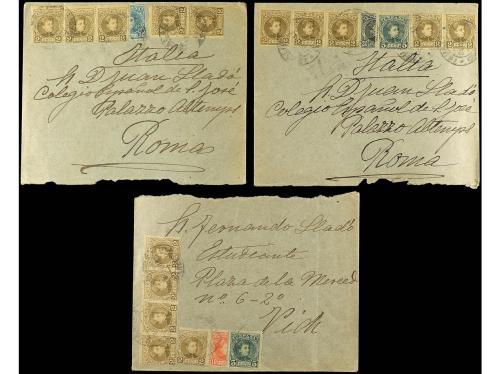 Italia
S. D. Juan Lladó
Colegio Español de S. José
Palazzo Altemps
Roma
Italia
S. D. Juan Lladó
Colegio Español de S. José
Palazzo Altemps
Roma
S. Fernando Lladó
Estudiante
Plaza de la Merced
nº 6-2º
Vich